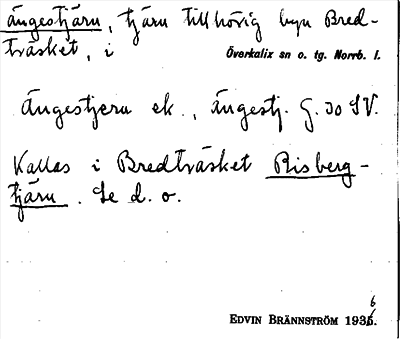 ängestjärn, tjärn tillhörig byn Bred-
träsket, i Överkalix sn o. tg. Norrb. l.
ängestjern ek., ängestj. G. 30 SV.
Kallas i Bredträsket Risberg-
tjärn. Se d. o.
EDVIN BRÄNNSTRÖM 1936.